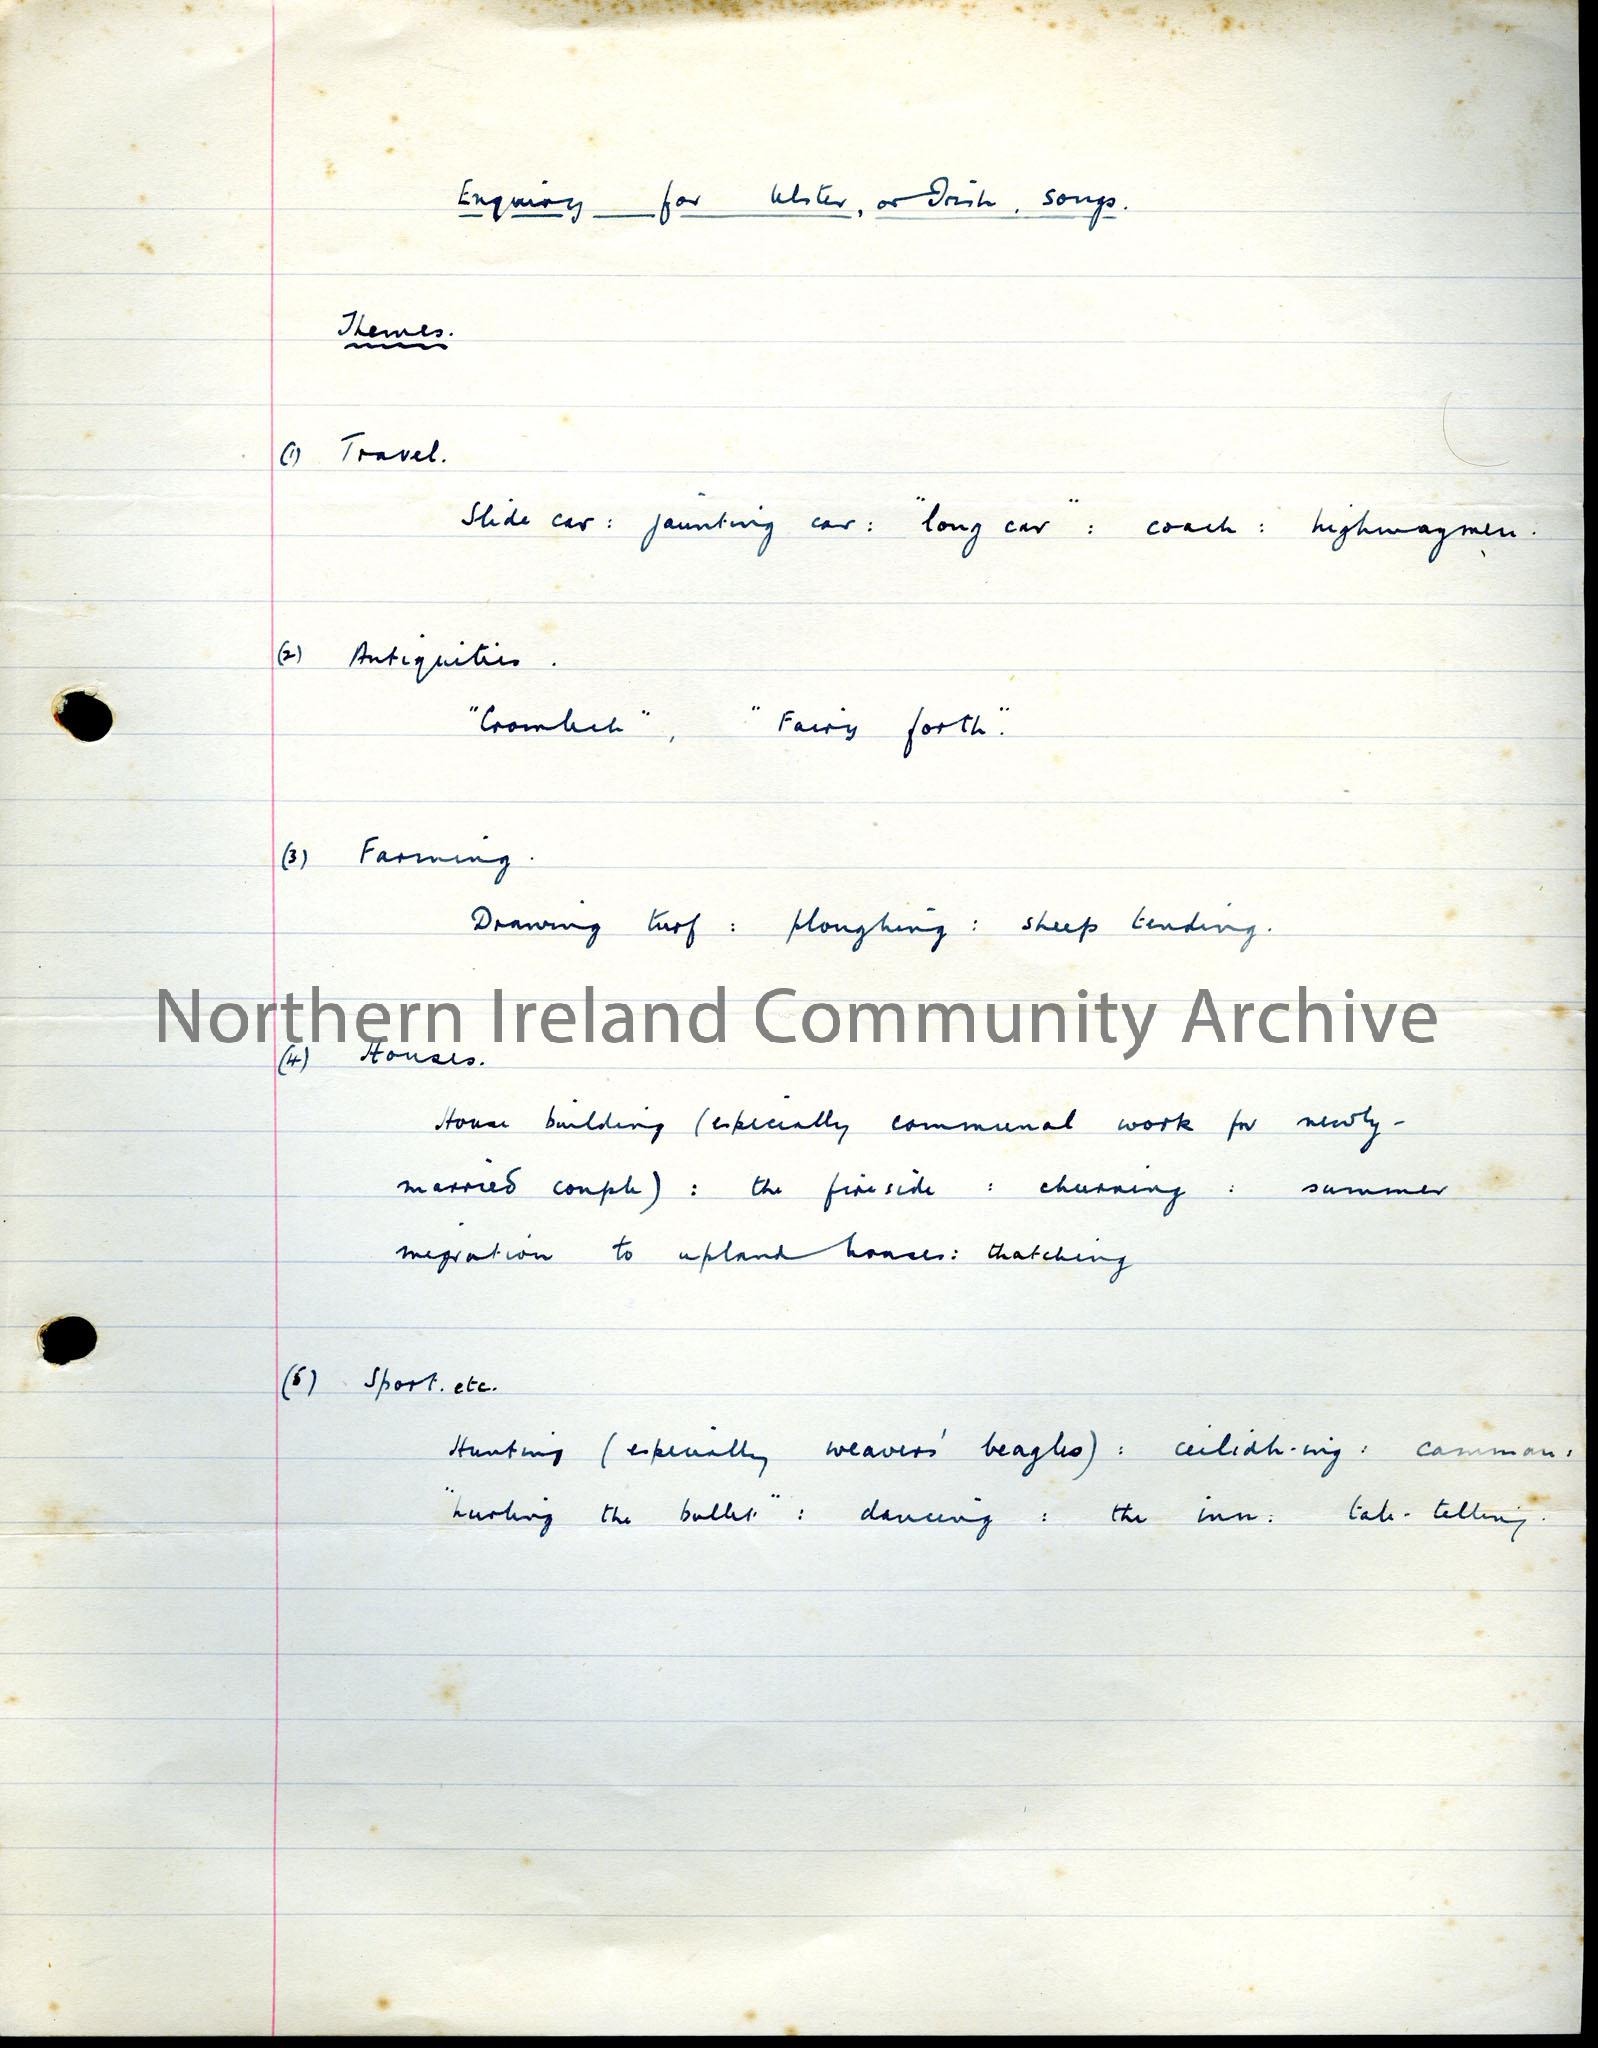 Enquiry for Ulster, or Irish, songs.
Themes.
(1) Travel.
Slide car: jaunting car: "long car": coach: highwaymen.
(2) Antiquities.
"Cromlech", "Fairy forth".
(3) Farming.
Drawing turf: ploughing: sheep tending.
Northern Ireland Community Archive
(4) Houses.
House building (especially communal work for newly-
married couple): the fireside: churning: summer
migration to upland houses: thatching
(5) Sport. etc.
Hunting (especially weavers' beagles): ceilidh-ing: camman:
"hurling the bullet": dancing: the inn: tale-telling.